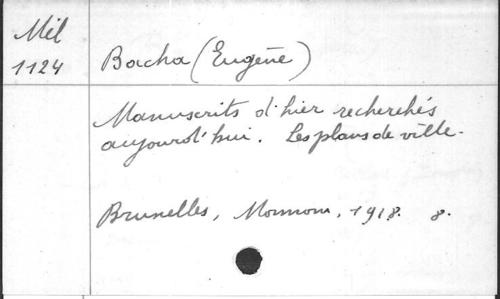 Mél
1124
Bacha (Eugène)
Manuscrits d'hier recherchés
aujourd'hui. Les plans de ville.
Bruxelles, 1918. 8.